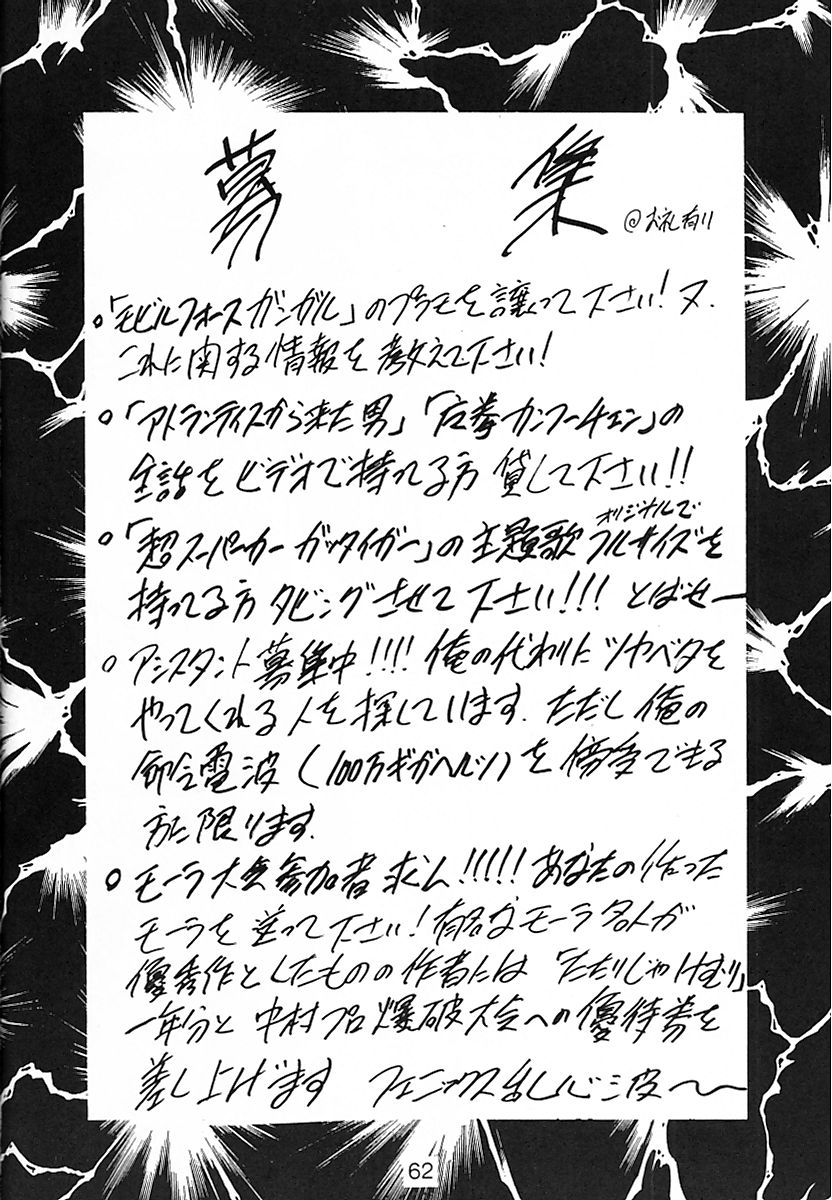 募集 @お礼有り
○「モビルフォースガンガル」のプラモを譲って下さい!又、
これに関する情報を教えて下さい!
○「アトランティスから来た男」「古拳カンフーチェン」の
全話をビデオで持ってる方貸して下さい!!
○「超スーパーカーガッタイガー」の主題歌オリジナルでフルサイズを
持ってる方ダビングさせて下さい!!!とばせー
○アシスタント募集中!!!!俺の代わりにツヤベタを
やってくれる人を探しています。ただし俺の
命令電波(100万ギガヘルツ)を傍受できる
方に限ります。
○モーラ大会参加者求ム!!!!!あなたの作った
モーラを送って下さい!有名なモーラ名人が
優秀作としたものの作者には「たたりじゃけむり」
一年分と中村プロ爆破大会への優待券を
差し上げます フェニックス乱心三波〜〜
62